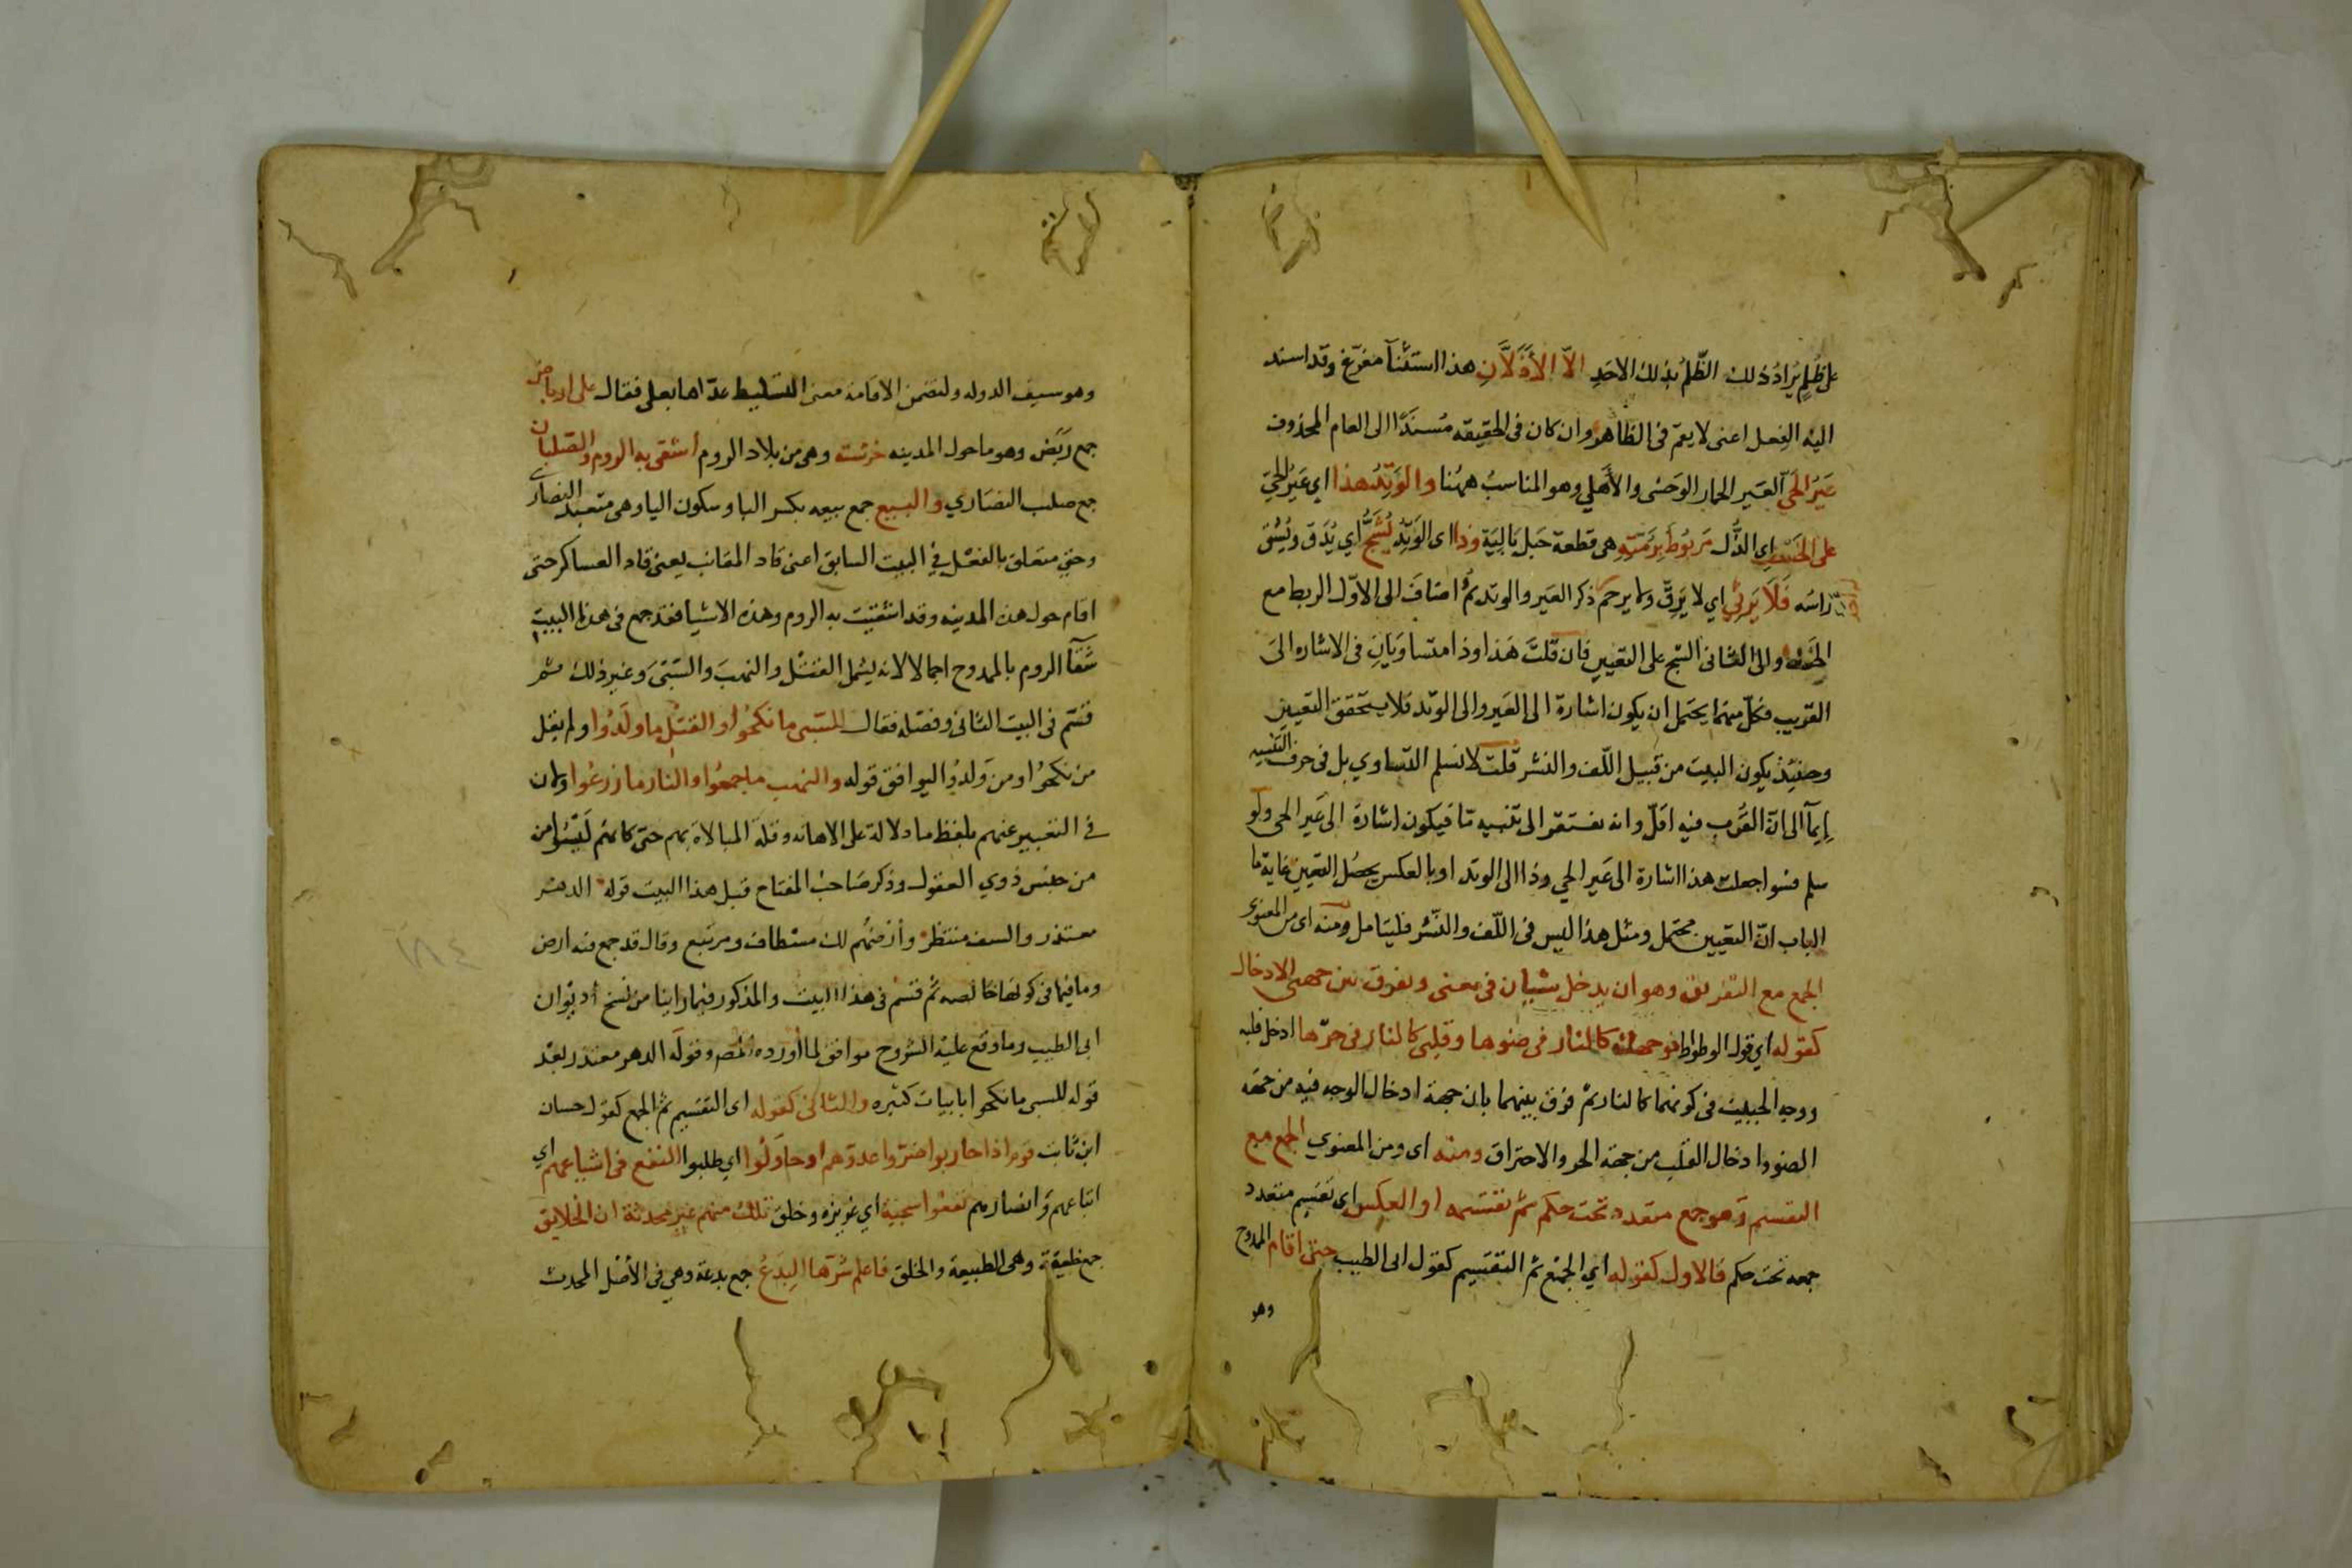 على ظلم يراد ذلك الظلم بذلك الاحد الا الاذلان هذا استثنآ مفرغ وقد اسند
اليه الفعل اعنى لا يعم فى الظاهر وان كان فى الحقيقه مسندا الى العام المحذوف
عير الحي العير الحمار الوحشى والأهلي وهو المناسب ههنا والوتد هذا اي عير الحي
على الخسف اي الذل مربوط برمته هى قطعة حبل بالية وذا اى الوتد يشج اي يدق ويشق
راسه فلا يرثي اي لا يرق ولا يرحم ذكر العير والوتد ثم اضاف الى الاول الربط مع
الخسف والى الثانى الشج على التعيين فان قلت هذا وذا متساويان فى الاشاره الى
القريب فكل منهما يحتمل ان يكون اشارة الى العير والى الوتد فلا يتحقق التعيين
وحنيئذ يكون البيت من قبيل اللف والنشر قلت لا نسلم التساوي بل فى حرف التنبيه
إيمآ الى ان القرب فيه اقل وانه يفتقر الى تنبيه ما فيكون اشارة الى عير الحى ولو
سلم فسوا جعلت هذا اشارة الى عير الحي وذا الى الوتد او بالعكس يحصل التعيين غاية ما
الباب ان التعيين محتمل ومثل هذا ليس فى اللف والنشر فليتامل ومنه اى من المعنوى
الجمع مع التفريق وهو ان يدخل شيان فى معنى ويفرق بين جهتى الادخال
كقوله اي قول الوطواط فوجهك كالنار فى ضوها وقلبى كالنار فى حرها ادخل قلبه
ووجه الحبيب فى كونهما كالنار ثم فرق بينهما بان جهة ادخال الوجه فيه من جهه
الضو وادخال القلب من جهة الحر والاحتراق ومنه اى ومن المعنوي الجمع مع
التقسيم وهو جمع متعدد تحت حكم ثم تقسيمه او العكس اى تقسيم متعدد
جمعه تحت حكم فالاول كقوله اي الجمع ثم التقسيم كقول ابى الطيب حتى اقام الممدوح
وهو
وهو سيف الدوله ولتضمن الاقامة معنى التسليط عداها بعلى فقال على ارباض
جمع ربض وهو ما حول المدينه خرشنة وهى من بلاد الروم أشقى به الروم والصلبان
جمع صليب النصاري والبيع جمع بيعه بكسر البا وسكون اليا وهى متعبد النصارى
وحتى متعلق بالفعل في البيت السابق اعنى قاد المقانب يعنى قاد العساكر حتى
اقام حول هذه المدينه وقد اشقيت به الروم وهذه الاشيا فقد جمع فى هذا البيت
شقآ الروم بالممدوح اجمالا لانه يشمل القتل والنهب والسبى وغير ذلك ثم
قسم فى البيت الثانى وفصله فقال للسبى ما نكحوا والقتل ما ولدوا ولم يقل
من نكحوا ومن ولدوا ليوافق قوله والنهب ما جمعوا والنار ما زرعوا ولان
في التعبير عنهم بلفظ ما دلالة على الاهانه وقلة المبالاة بهم حتى كانهم ليسوا من
من جنس ذوي العقول وذكر صاحب المفتاح قبل هذا البيت قوله الدهر
معتذر والسيف منتظر وأرضهم لك مصطاف ومرتبع وقال قد جمع فيه ارض
وما فيها فى كونها خالصه ثم قسم فى هذا البيت والمذكور فيما راينا من نسخ ديوان
ابى الطيب وما وقع عليه الشروح موافق لما أورده المص وقوله الدهر معتذر بعد
قوله للسبى ما نكحوا بابيات كثيره والثانى كقوله اى التقسيم ثم الجمع كقول حسان
ابن ثابت قوم اذا حاربوا ضروا عدوهم او حاولوا اي طلبوا النفع فى اشياعهم اي
اتباعهم وانصارهم نفعوا سجية اي غريزه وخلق تلك منهم غير محدثة ان الخلايق
جمع خليقة وهى الطبيعة والخلق فاعلم شرها البدع جمع بدعة وهي فى الأصل المحدث